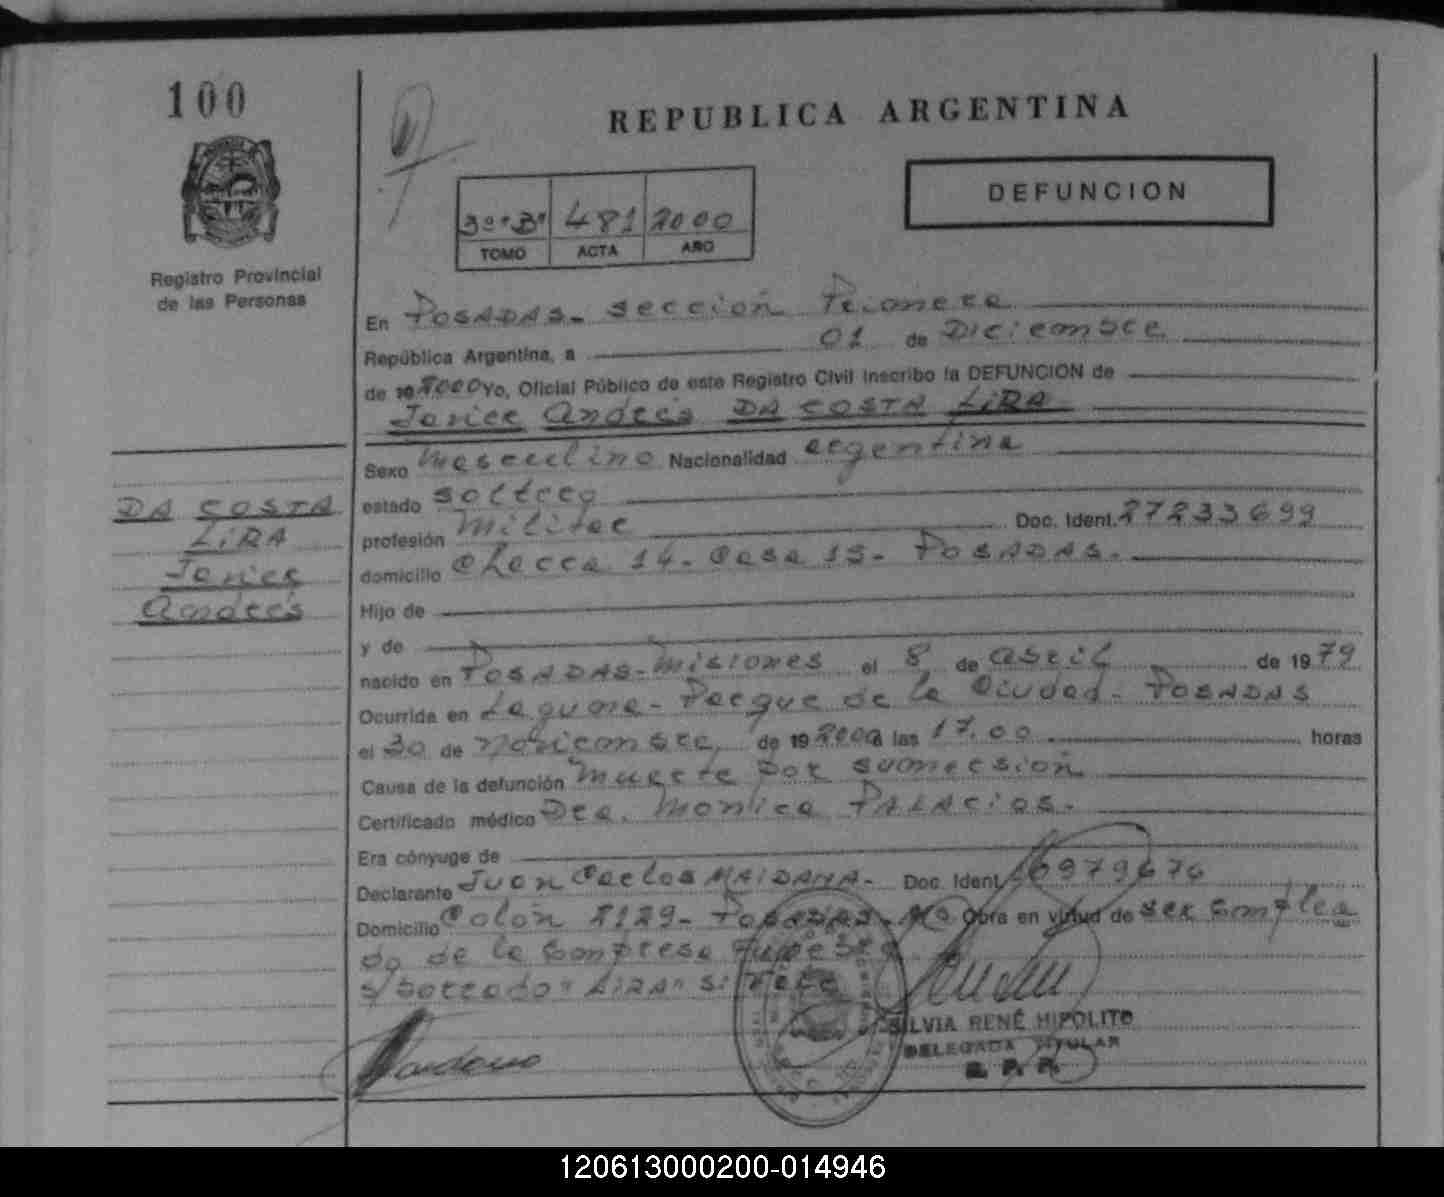 100
REPUBLICA ARGENTINA
DEFUNCION
3º"B" 481 2000
TOMO ACTA AÑO
Registro Provincial
de las Personas
En POSADAS- Sección Primera
República Argentina, a 01 de Diciembre
de 19 2000 Yo, Oficial Público de este Registro Civil inscribo la DEFUNCION de
Javier Andrés DA COSTA LIRA
Sexo Masculino Nacionalidad argentina
DA COSTA
LIRA
Javier
Andrés
estado soltero
profesión Militar Doc. Ident. 27233699
domicilio Chacra 14- Casa 15- POSADAS.
Hijo de
y de
nacido en POSADAS-Misiones el 8 de abril de 1979
Ocurrida en Laguna- Parque de la Ciudad- POSADAS
el 30 de Noviembre de 19 2000 a las 17.00 horas
Causa de la defunción Muerte por sumersión
Certificado médico Dra. Monica PALACIOS.
Era cónyuge de
Declarante Juan Carlos MAIDANA- Doc. Ident.
Domicilio Colón 2129- POSADAS- Obra en virtud de ser emplea
do de la Empresa Fúnebre
s/borrado
SILVIA RENÉ HIPOLITO
DELEGADA TITULAR
R. P. P.
120613000200-014946